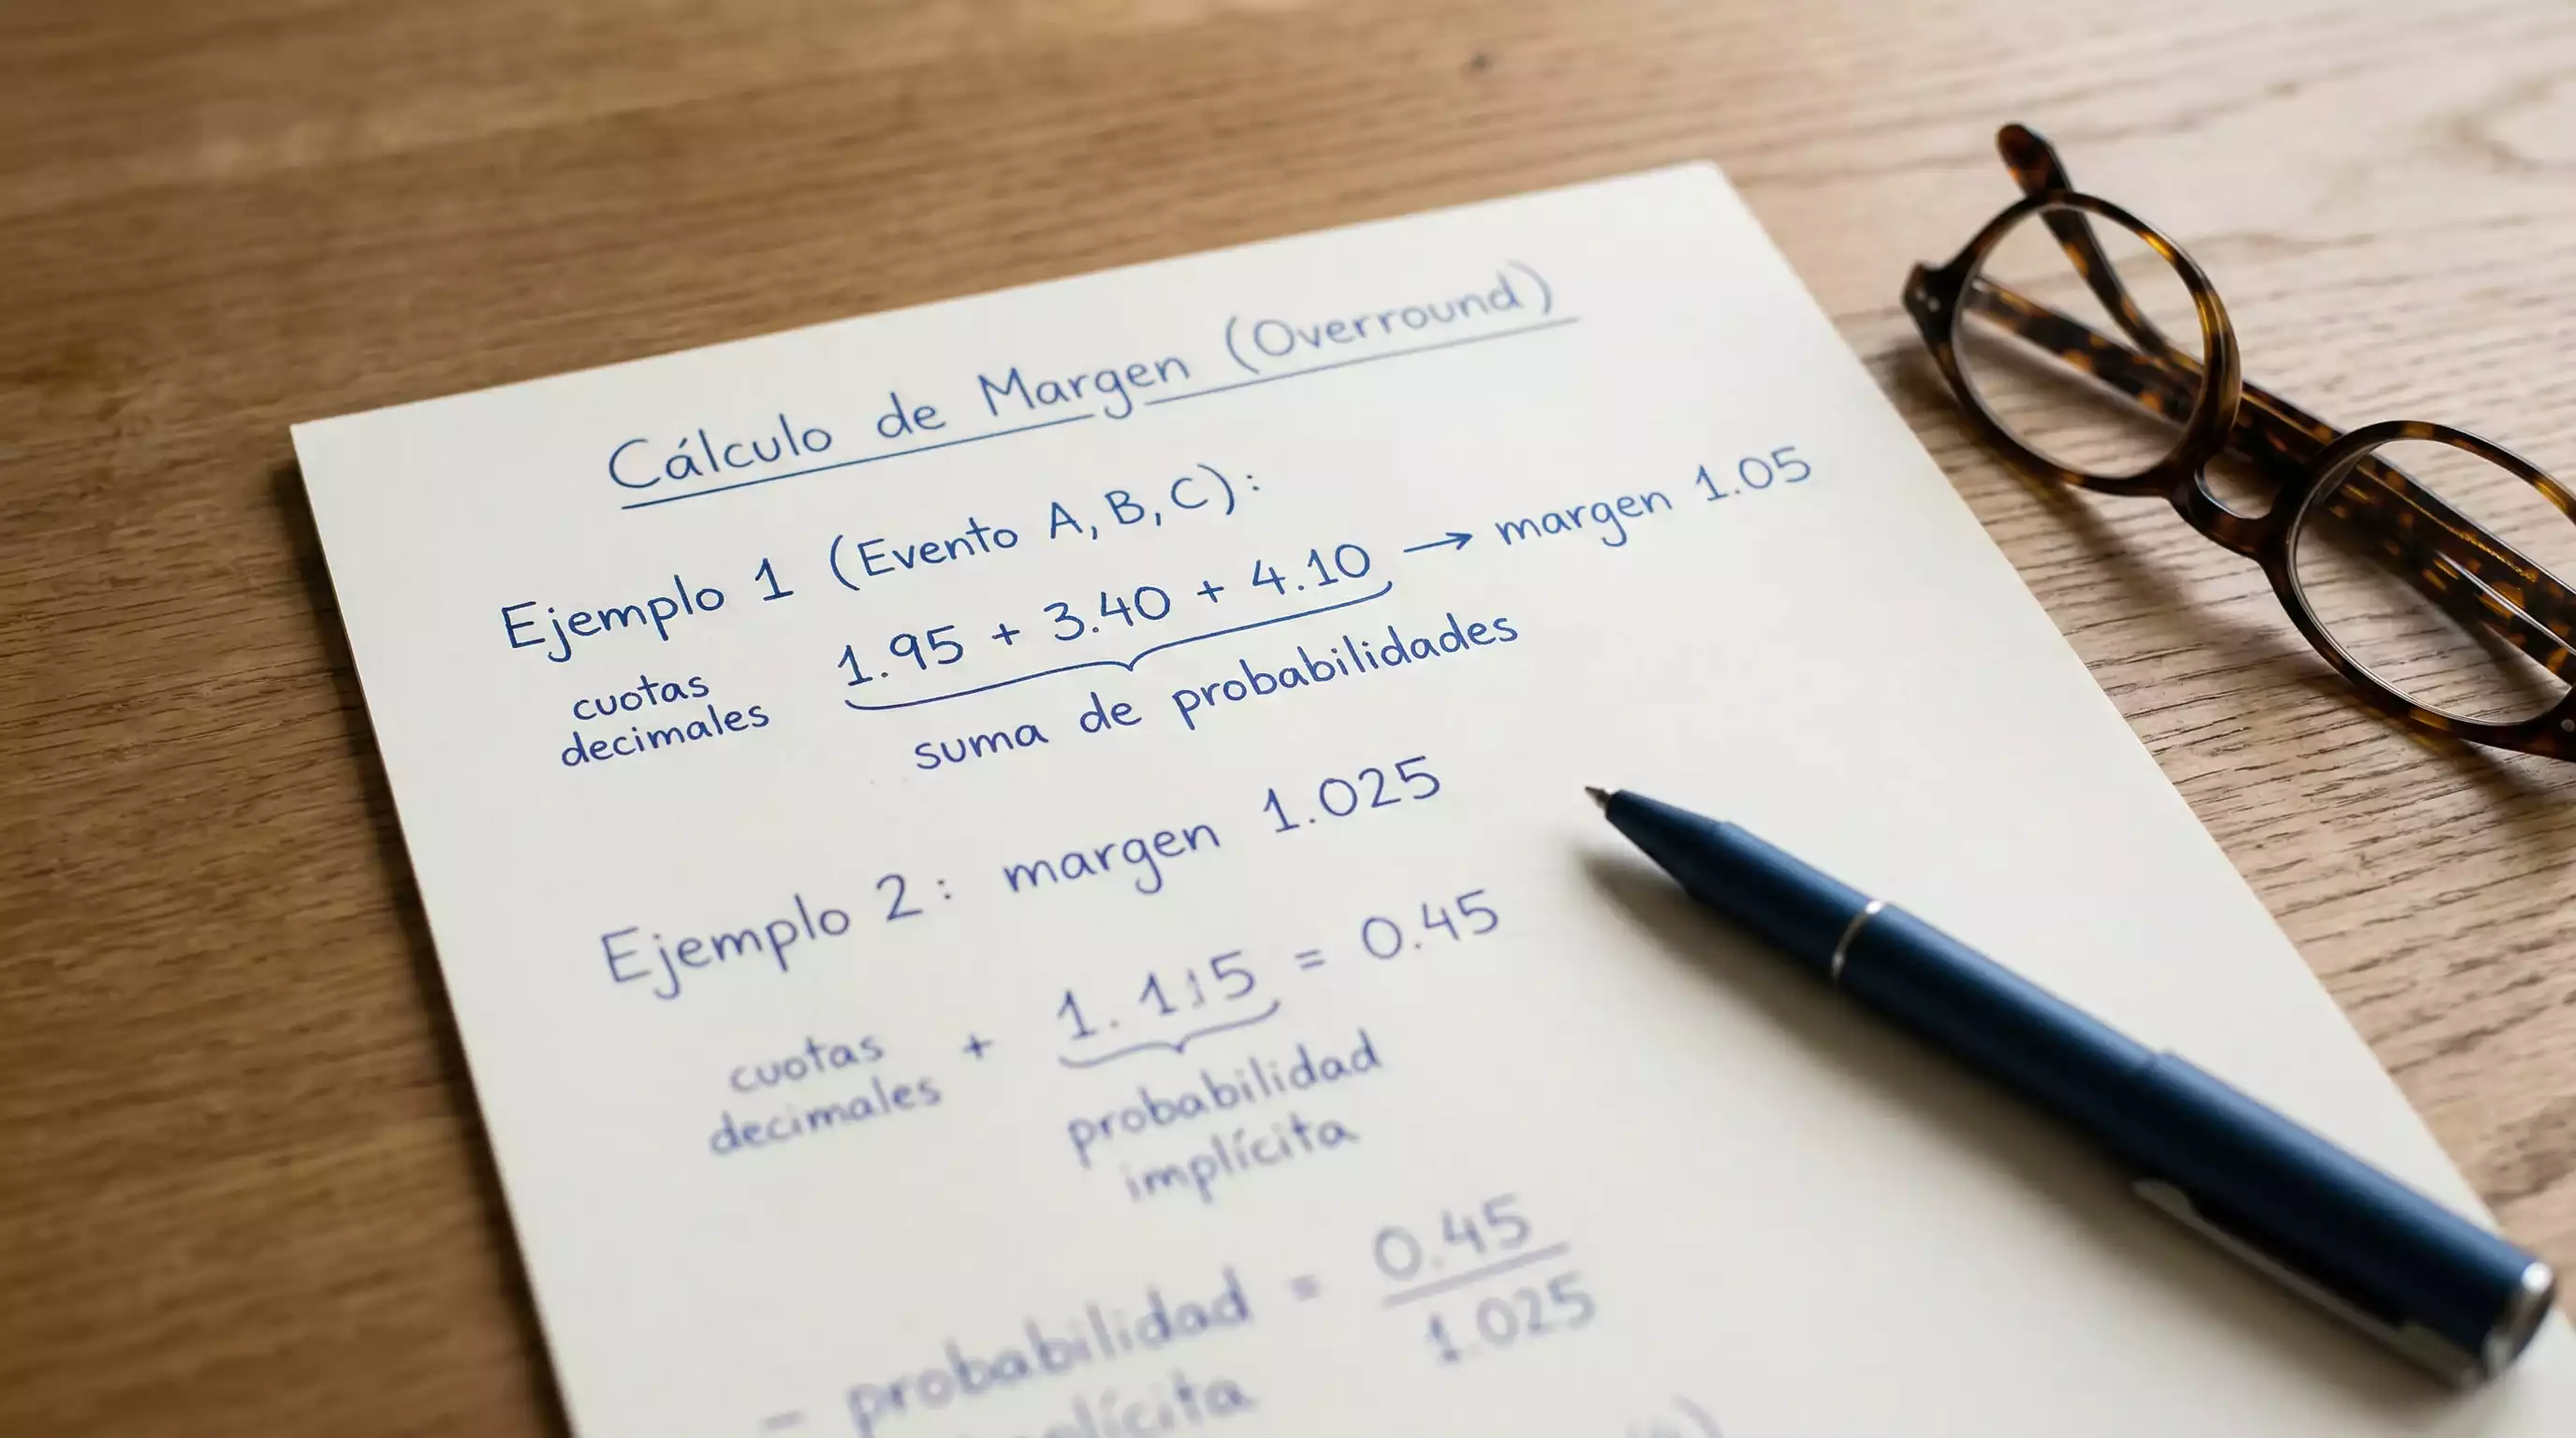 Cálculo de Margen (Overround)
Ejemplo 1 (Evento A, B, C):
1.95 + 3.40 + 4.10 → margen 1.05
cuotas
decimales
suma de probabilidades
Ejemplo 2: margen 1.025
cuotas
decimales + 1. 115 = 0.45
probabilidad
implícita
– probabilidad = 0.45
1.025